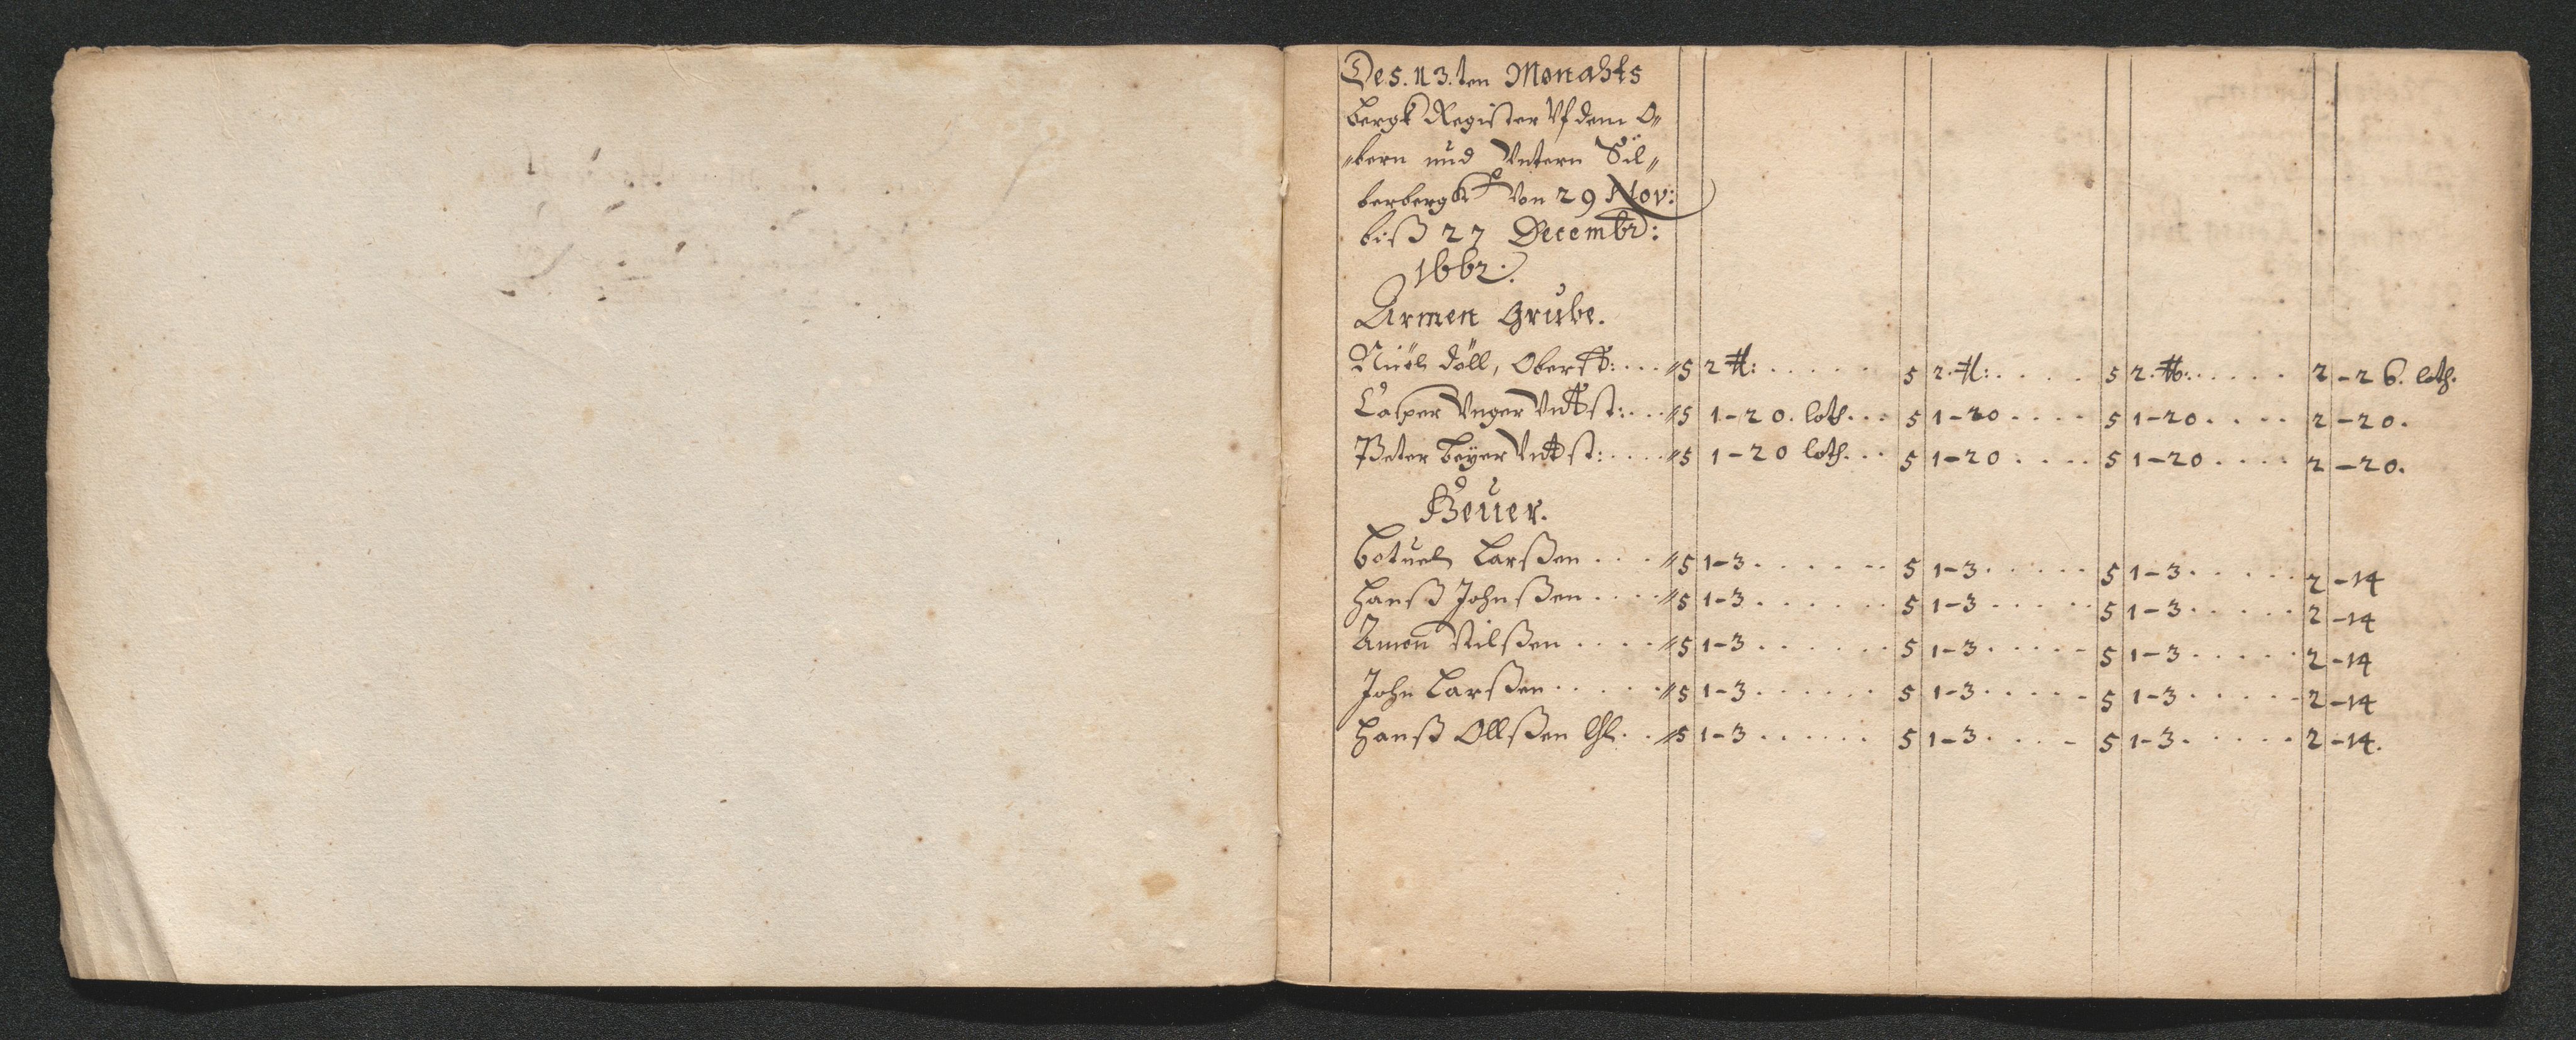 Des. 13.ten Monahts
Bergk Register Vf dem O„
„bern und Vntern Sil„
berbergk Von 29 Nov:
biß 27 Decembr:
1662.
Armen Grube.
Döll, Oberst: .... 5 2 ℔: ..... 5 2. ℔: .... 5 2. ℔: ..... 2 - 26. loth.
Casper Vnger Vntst: ... 5 1-20. loth... 5 1-20 .... 5 1-20. ... 2 -20.
Peter Beÿer Vntst: .... 5 1-20 loth... 5 1-20 .... 5 1-20 .... 2 -20.
Heuer.
Botuel Larßen .... 5 1-3. ..... 5 1-3. .... 5 1-3. .... 2 -14
Hanß Johnßen .... 5 1-3 ...... 5 1-3 .... 5 1-3 ..... 2 -14
Amon Nilßen .... 5 1-3 ...... 5 1-3. .... 5 1-3. .... 2 -14
John Larßen ..... 5 1-3 ...... 5 1-3. .... 5 1-3. .... 2 -14
Hanß Ollßen .. 5 1-3 ...... 5 1-3. ... 5 1-3. .... 2 -14.